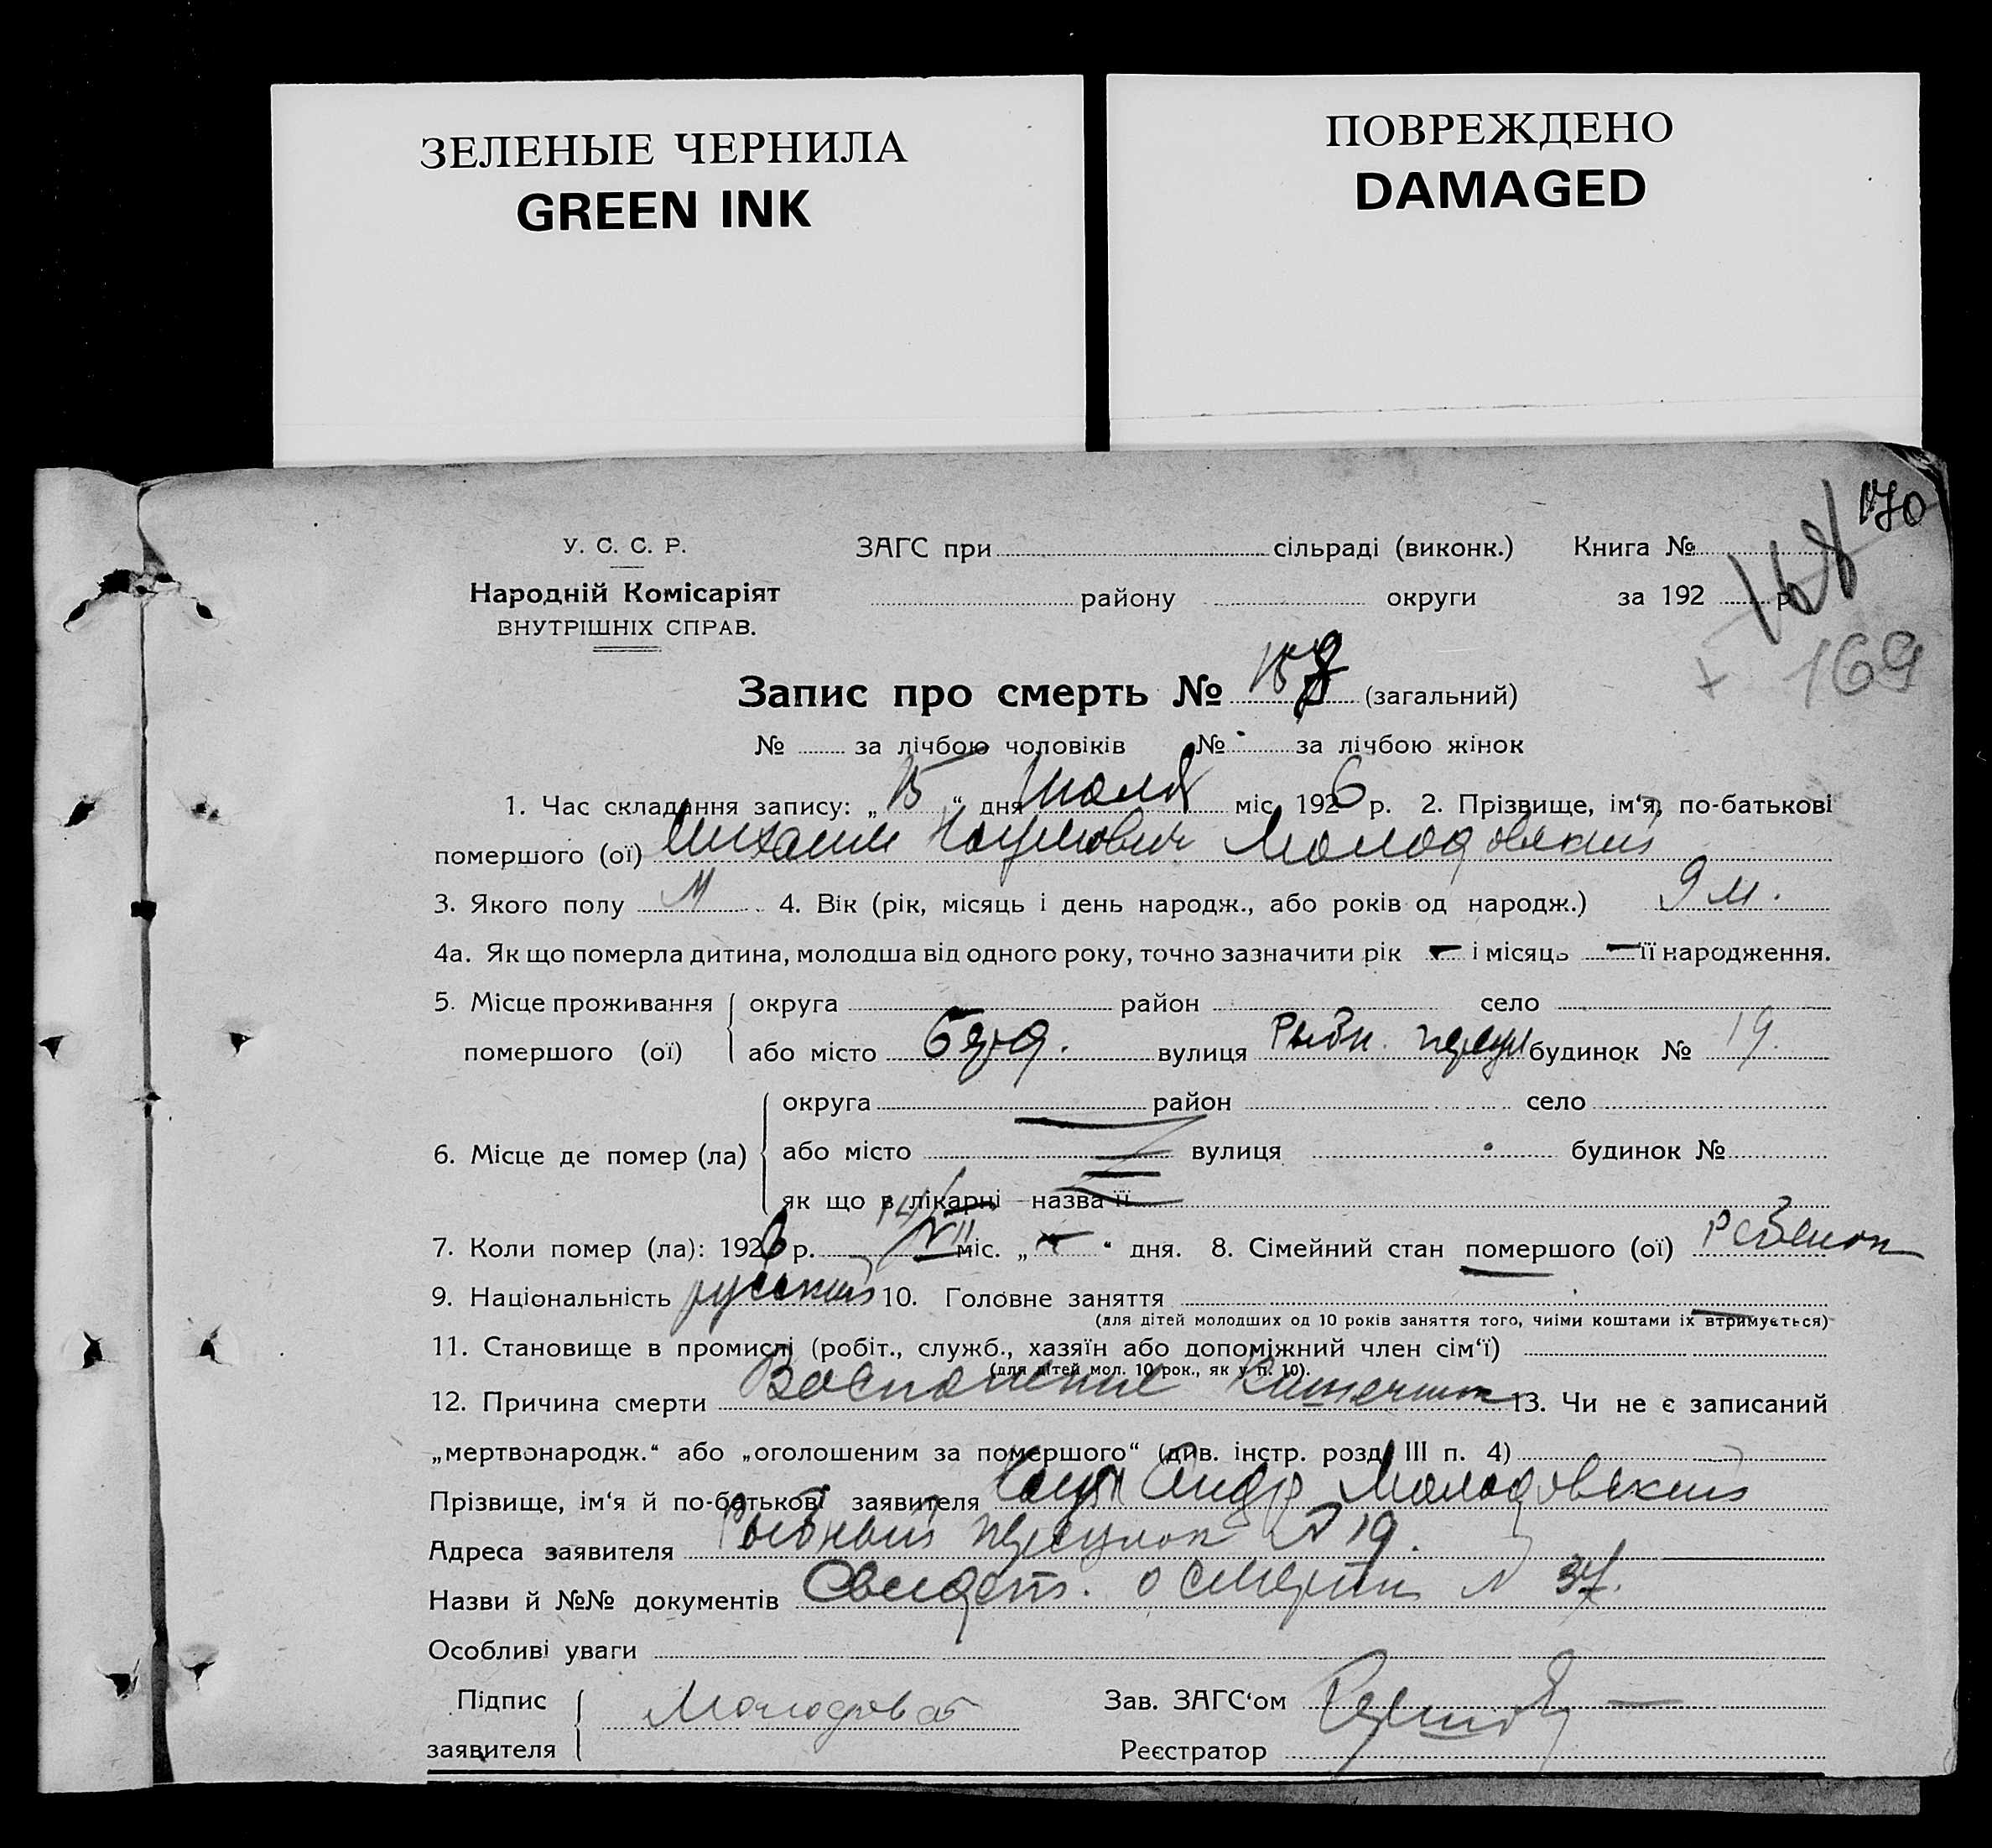 ЗЕЛЕНЫЕ ЧЕРНИЛА
GREEN INK
ПОВРЕЖДЕНО
DAMAGED
170
168
+ 169
У. С. С. Р.
Народній Комісаріят
ВНУТРІШНІХ СПРАВ.
ЗАГС при сільраді (виконк.) Книга №
району округи за 192 р.
Запис про смерть № 158 (загальний)
№ за лічбою чоловіків № за лічбою жінок
1. Час складання запису: „15“ дня Июля міс. 1926 р. 2. Прізвище, ім‘я, по-батькові
помершого (ої) Михаил Наумович Молодовский
3. Якого полу М 4. Вік (рік, місяць і день народж., або років од народж.) 9 м.
4а. Як що померла дитина, молодша від одного року, точно зазначити рік – і місяць – її народження.
5. Місце проживання округа район село
помершого (ої) або місто вулиця Рыбн. переул будинок № 19.
округа район село
6. Місце де помер (ла) або місто вулиця будинок №
як що в лікарні назва її
7. Коли помер (ла): 1926 р. 14/VII міс. „ “ дня. 8. Сімейний стан помершого (ої) Ребенок
9. Національність русский 10. Головне заняття
(для дітей молодших од 10 років заняття того, чиїми коштами їх втримується)
11. Становище в промислі (робіт., служб., хазяїн або допоміжний член сім‘ї)
(для дітей мол. 10 рок., як у п. 10).
12. Причина смерти Воспаление Кишечника 13. Чи не є записаний
„мертвонародж.“ або „оголошеним за помершого“ (див. інстр. розд. III п. 4)
Прізвище, ім‘я й по-батькові заявителя Наум Молодовский
Адреса заявителя Рыбный переулок № 19.
Назви й №№ документів Свидет. о смерти № 37.
Особливі уваги
Підпис
заявителя
Зав. ЗАГС‘ом
Реєстратор